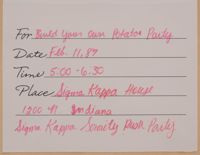 For Build Your Own Potatoe Party
Date Feb. 11, 87
Time 5:00 - 6:30
Place Sigma Kappa House
1200 41 Indiana
Sigma Kappa Sorority Rush Party